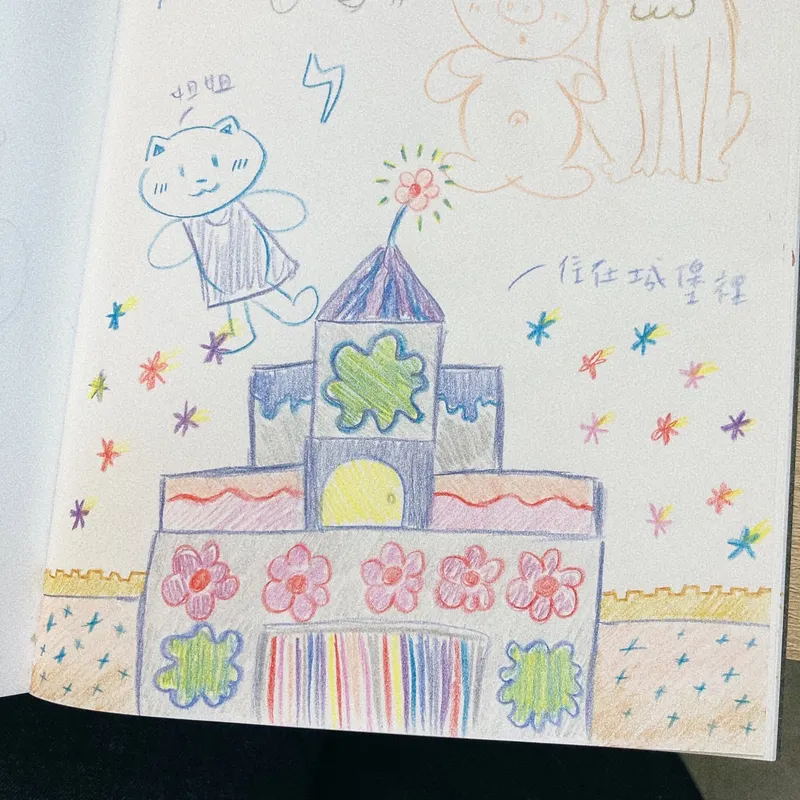 姐姐
住在城堡裡